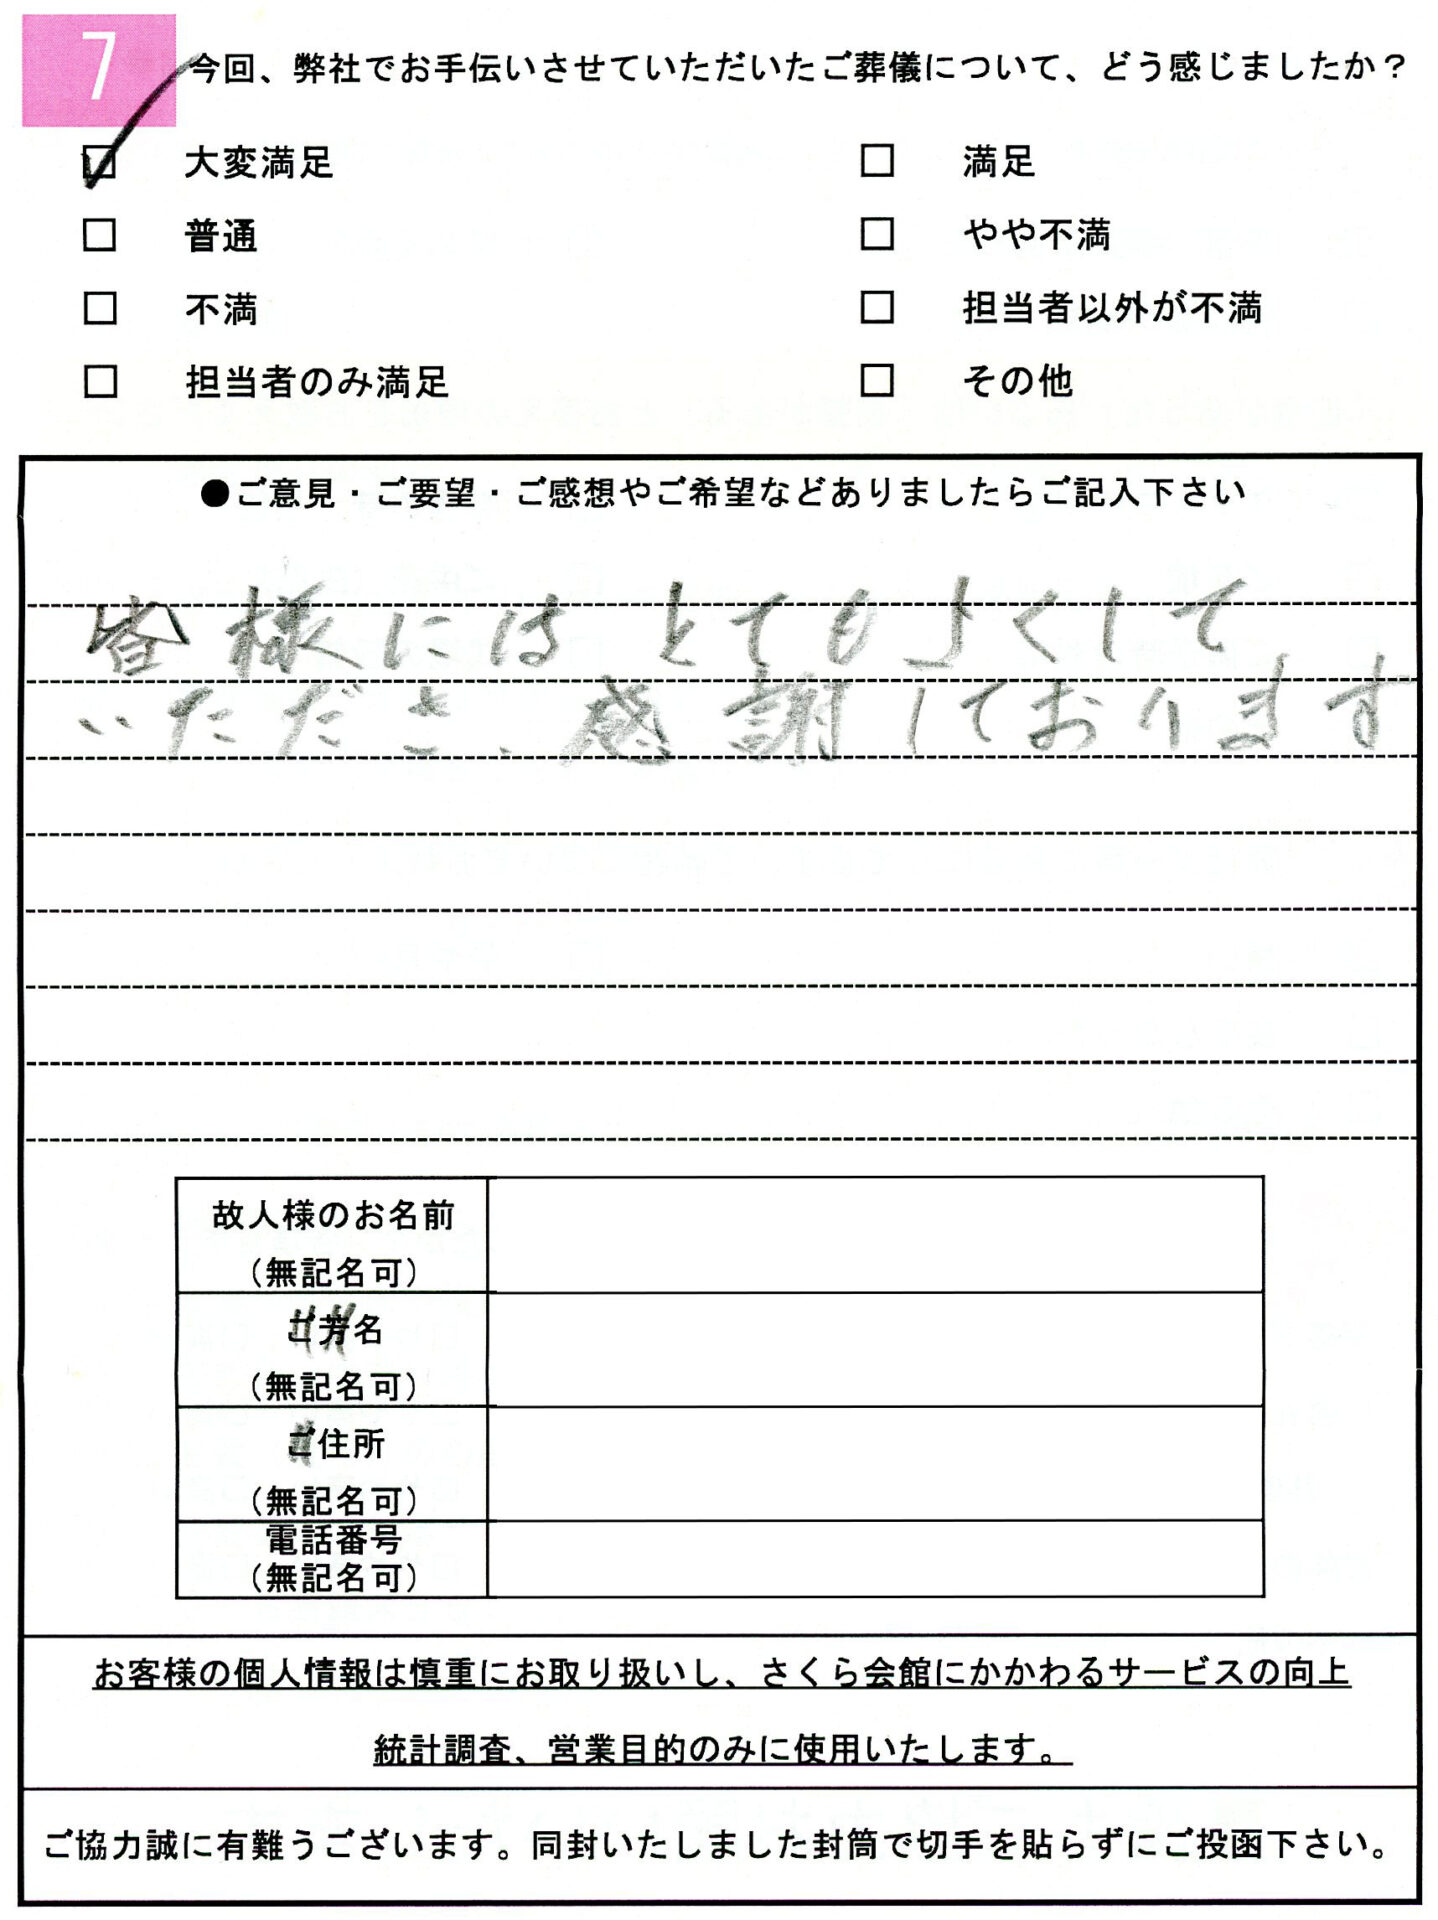 7
今回、弊社でお手伝いさせていただいたご葬儀について、どう感じましたか？
☑ 大変満足 □ 満足
□ 普通 □ やや不満
□ 不満 □ 担当者以外が不満
□ 担当者のみ満足 □ その他
●ご意見・ご要望・ご感想やご希望などありましたらご記入下さい
皆様には とてもよくして
いただき、感謝しております
故人様のお名前
（無記名可）
ご芳名
（無記名可）
ご住所
（無記名可）
電話番号
（無記名可）
お客様の個人情報は慎重にお取り扱いし、さくら会館にかかわるサービスの向上
統計調査、営業目的のみに使用いたします。
ご協力誠に有難うございます。同封いたしました封筒で切手を貼らずにご投函下さい。